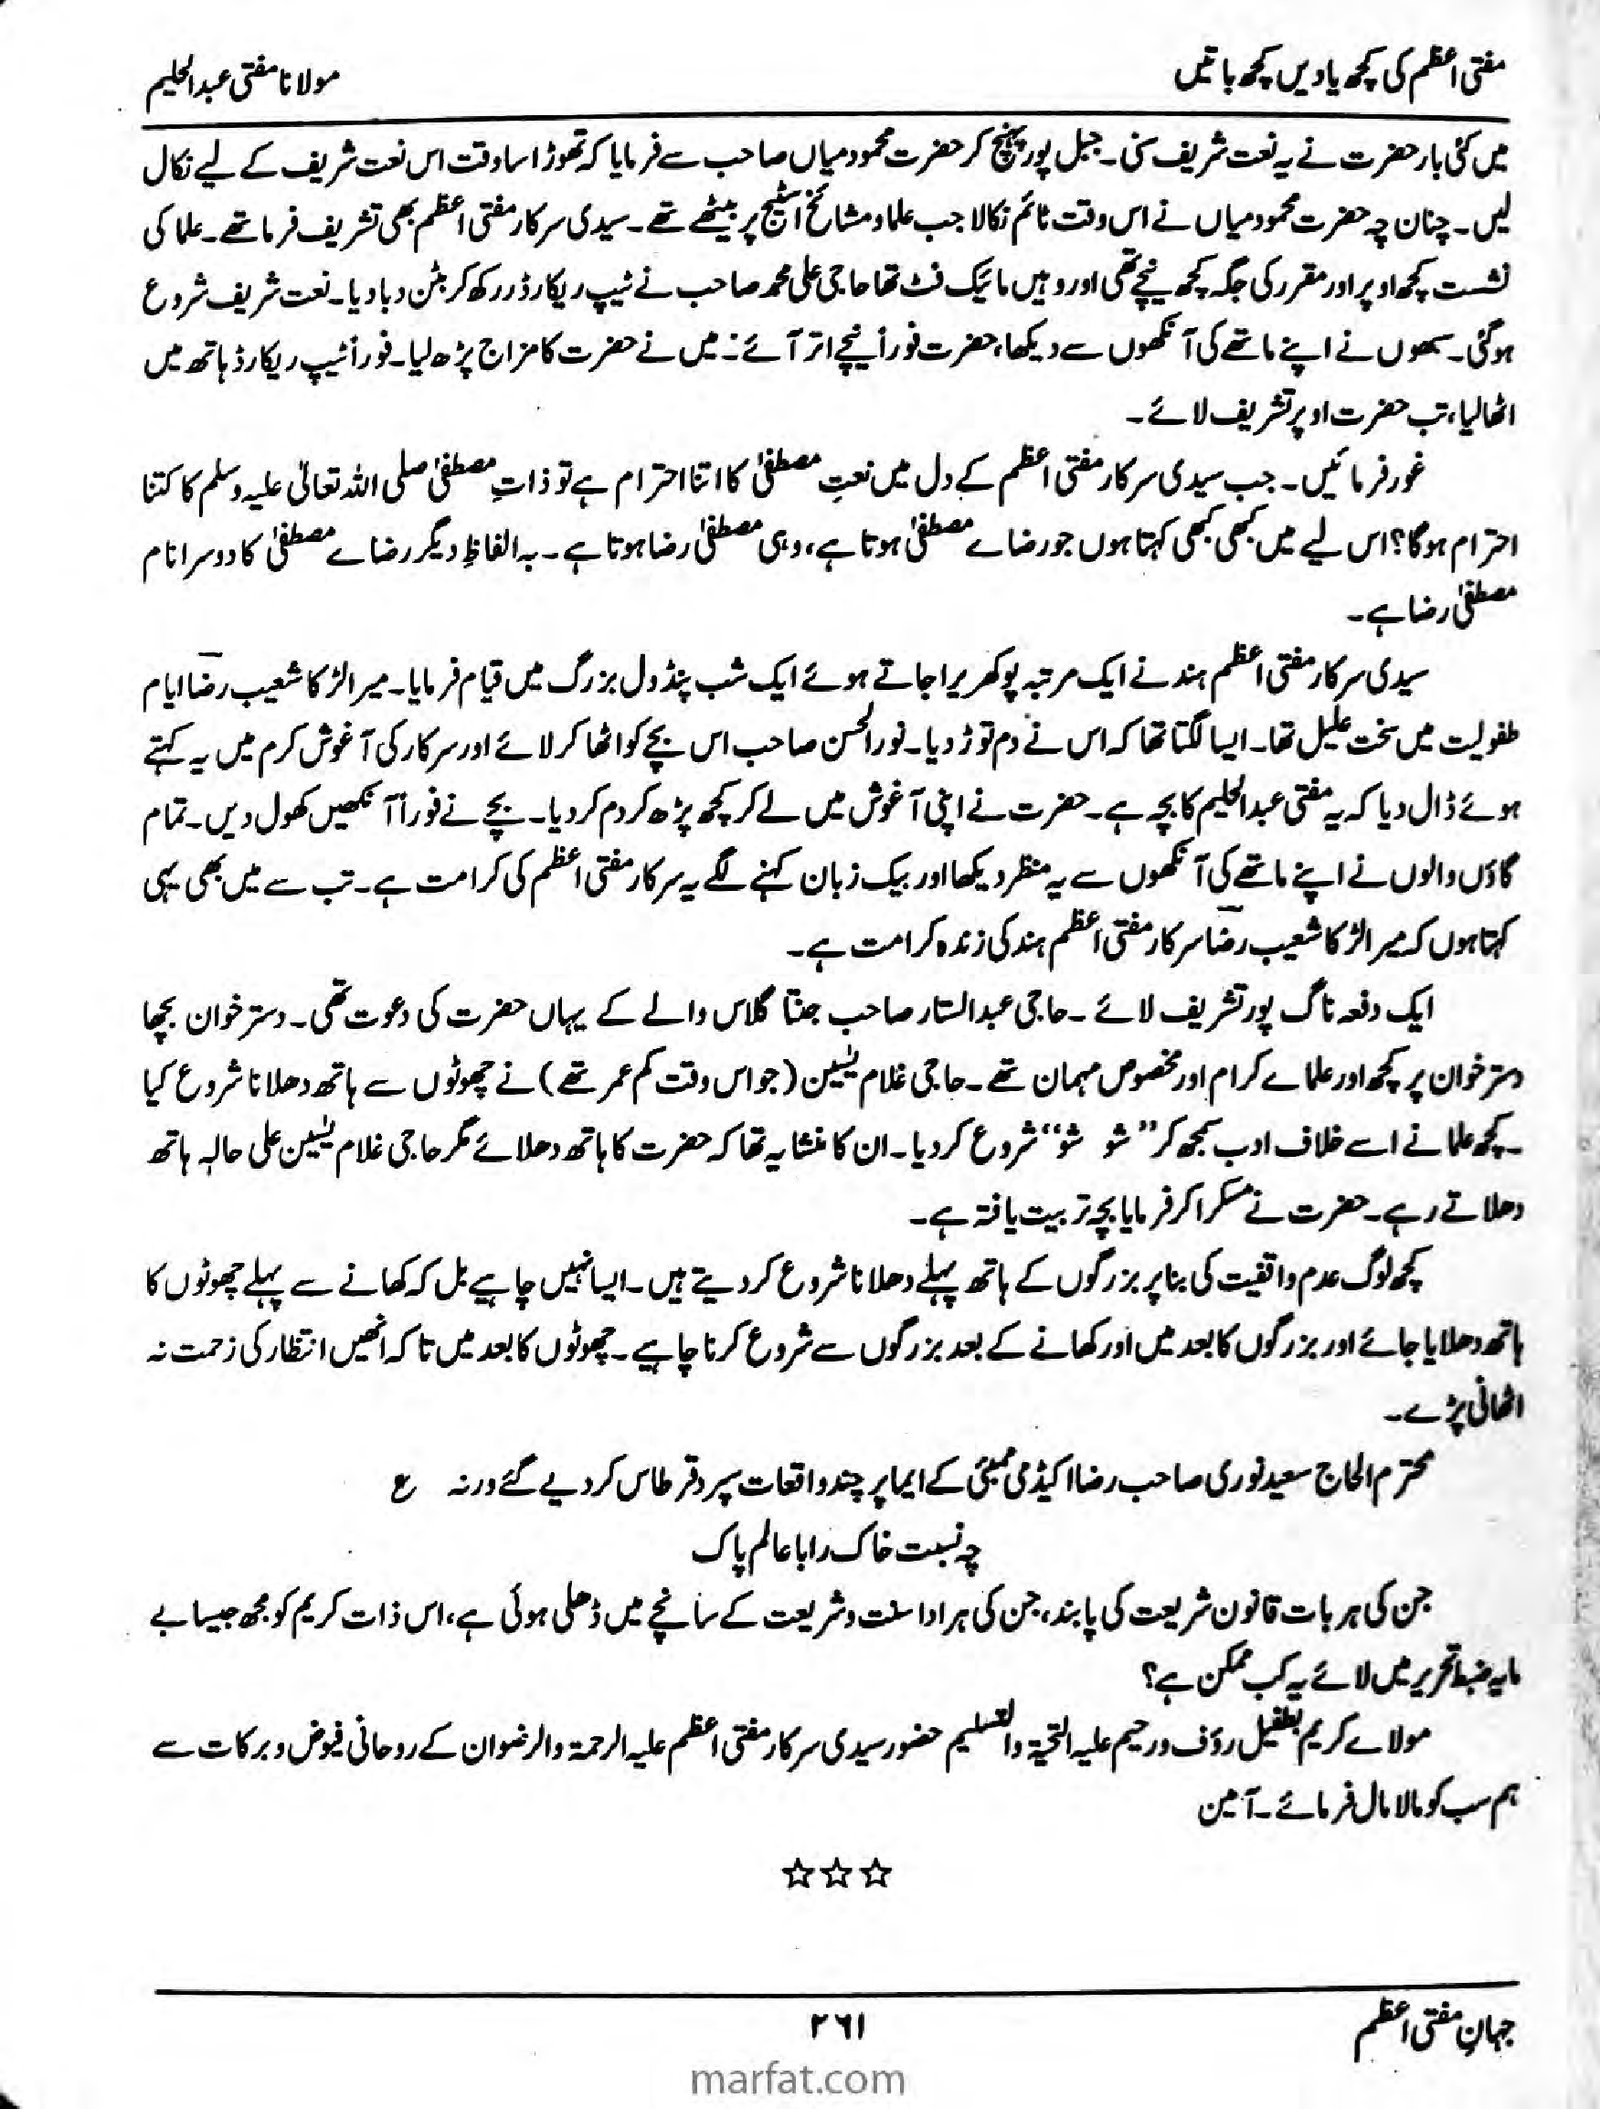 مفتی اعظم کی کچھ یادیں کچھ باتیں
مولانا مفتی عبدالحلیم
میں کئی بار حضرت نے یہ نعت شریف سنی۔ جبل پور پہنچ کر حضرت محمود میاں صاحب سے فرمایا کہ تھوڑا سا وقت اس نعت شریف کے لیے نکال
لیں۔ چنان چہ حضرت محمود میاں نے اس وقت ٹائم نکالا جب علما و مشائخ اسٹیج پر بیٹھے تھے۔ سیدی سرکار مفتی اعظم بھی تشریف فرما تھے۔ علما کی
نشست کچھ اوپر اور مقرر کی جگہ کچھ نیچے تھی اور وہیں مائیک فٹ تھا حاجی علی محمد صاحب نے ٹیپ ریکارڈر رکھ کر بٹن دبا دیا۔ نعت شریف شروع
ہوگئی۔ سبھوں نے اپنے ماتھے کی آنکھوں سے دیکھا، حضرت فوراً نیچے اتر آئے۔ میں نے حضرت کا مزاج پڑھ لیا۔ فوراً ٹیپ ریکارڈ ہاتھ میں
اٹھا لیا، تب حضرت اوپر تشریف لائے۔
غور فرمائیں۔ جب سیدی سرکار مفتی اعظم کے دل میں نعتِ مصطفیٰ کا اتنا احترام ہے تو ذاتِ مصطفیٰ صلی اللہ تعالیٰ علیہ وسلم کا کتنا
احترام ہوگا؟ اس لیے میں کبھی کبھی کہتا ہوں جو رضاے مصطفیٰ ہوتا ہے، وہی مصطفیٰ رضا ہوتا ہے۔ بہ الفاظِ دیگر رضاے مصطفیٰ کا دوسرا نام
مصطفیٰ رضا ہے۔
سیدی سرکار مفتی اعظم ہند نے ایک مرتبہ پوکھریرا جاتے ہوئے ایک شب پنڈول بزرگ میں قیام فرمایا۔ میرا لڑکا شعیب رضا ایام
طفولیت میں سخت علیل تھا۔ ایسا لگتا تھا کہ اس نے دم توڑ دیا۔ نور الحسن صاحب اس بچے کو اٹھا کر لائے اور سرکار کی آغوش کرم میں یہ کہتے
ہوئے ڈال دیا کہ یہ مفتی عبدالحلیم کا بچہ ہے۔ حضرت نے اپنی آغوش میں لے کر کچھ پڑھ کر دم کر دیا۔ بچے نے فوراً آنکھیں کھول دیں۔ تمام
گاؤں والوں نے اپنے ماتھے کی آنکھوں سے یہ منظر دیکھا اور بیک زبان کہنے لگے یہ سرکار مفتی اعظم کی کرامت ہے۔ تب سے میں بھی یہی
کہتا ہوں کہ میرا لڑکا شعیب رضا سرکار مفتی اعظم ہند کی زندہ کرامت ہے۔
ایک دفعہ ناگ پور تشریف لائے۔ حاجی عبدالستار صاحب جنتا گلاس والے کے یہاں حضرت کی دعوت تھی۔ دستر خوان بچھا
دستر خوان پر کچھ اور علماے کرام اور مخصوص مہمان تھے۔ حاجی غلام یٰسین (جو اس وقت کم عمر تھے) نے چھوٹوں سے ہاتھ دھلانا شروع کیا
۔ کچھ علما نے اسے خلاف ادب سمجھ کر ”شو شو“ شروع کر دیا۔ ان کا منشا یہ تھا کہ حضرت کا ہاتھ دھلائے مگر حاجی غلام یٰسین علی حالہ ہاتھ
دھلاتے رہے۔ حضرت نے مسکرا کر فرمایا بچہ تربیت یافتہ ہے۔
کچھ لوگ عدم واقفیت کی بنا پر بزرگوں کے ہاتھ پہلے دھلانا شروع کر دیتے ہیں۔ ایسا نہیں چاہیے بل کہ کھانے سے پہلے چھوٹوں کا
ہاتھ دھلایا جائے اور بزرگوں کا بعد میں اور کھانے کے بعد بزرگوں سے شروع کرنا چاہیے۔ چھوٹوں کا بعد میں تا کہ انھیں انتظار کی زحمت نہ
اٹھانی پڑے۔
محترم الحاج سعید نوری صاحب رضا اکیڈمی ممبئی کے ایما پر چند واقعات سپرد قرطاس کر دیے گئے ورنہ ع
چہ نسبت خاک را با عالم پاک
جن کی ہر بات قانون شریعت کی پابند، جن کی ہر ادا سنت و شریعت کے سانچے میں ڈھلی ہوئی ہے، اس ذات کریم کو مجھ جیسا بے
مایہ ضبط تحریر میں لائے یہ کب ممکن ہے؟
مولاے کریم بطفیل رؤف و رحیم علیہ التحیۃ والتسلیم حضور سیدی سرکار مفتی اعظم علیہ الرحمۃ والرضوان کے روحانی فیوض و برکات سے
ہم سب کو مالا مال فرمائے۔ آمین
☆☆☆
جہانِ مفتی اعظم
۲۶۱
marfat.com